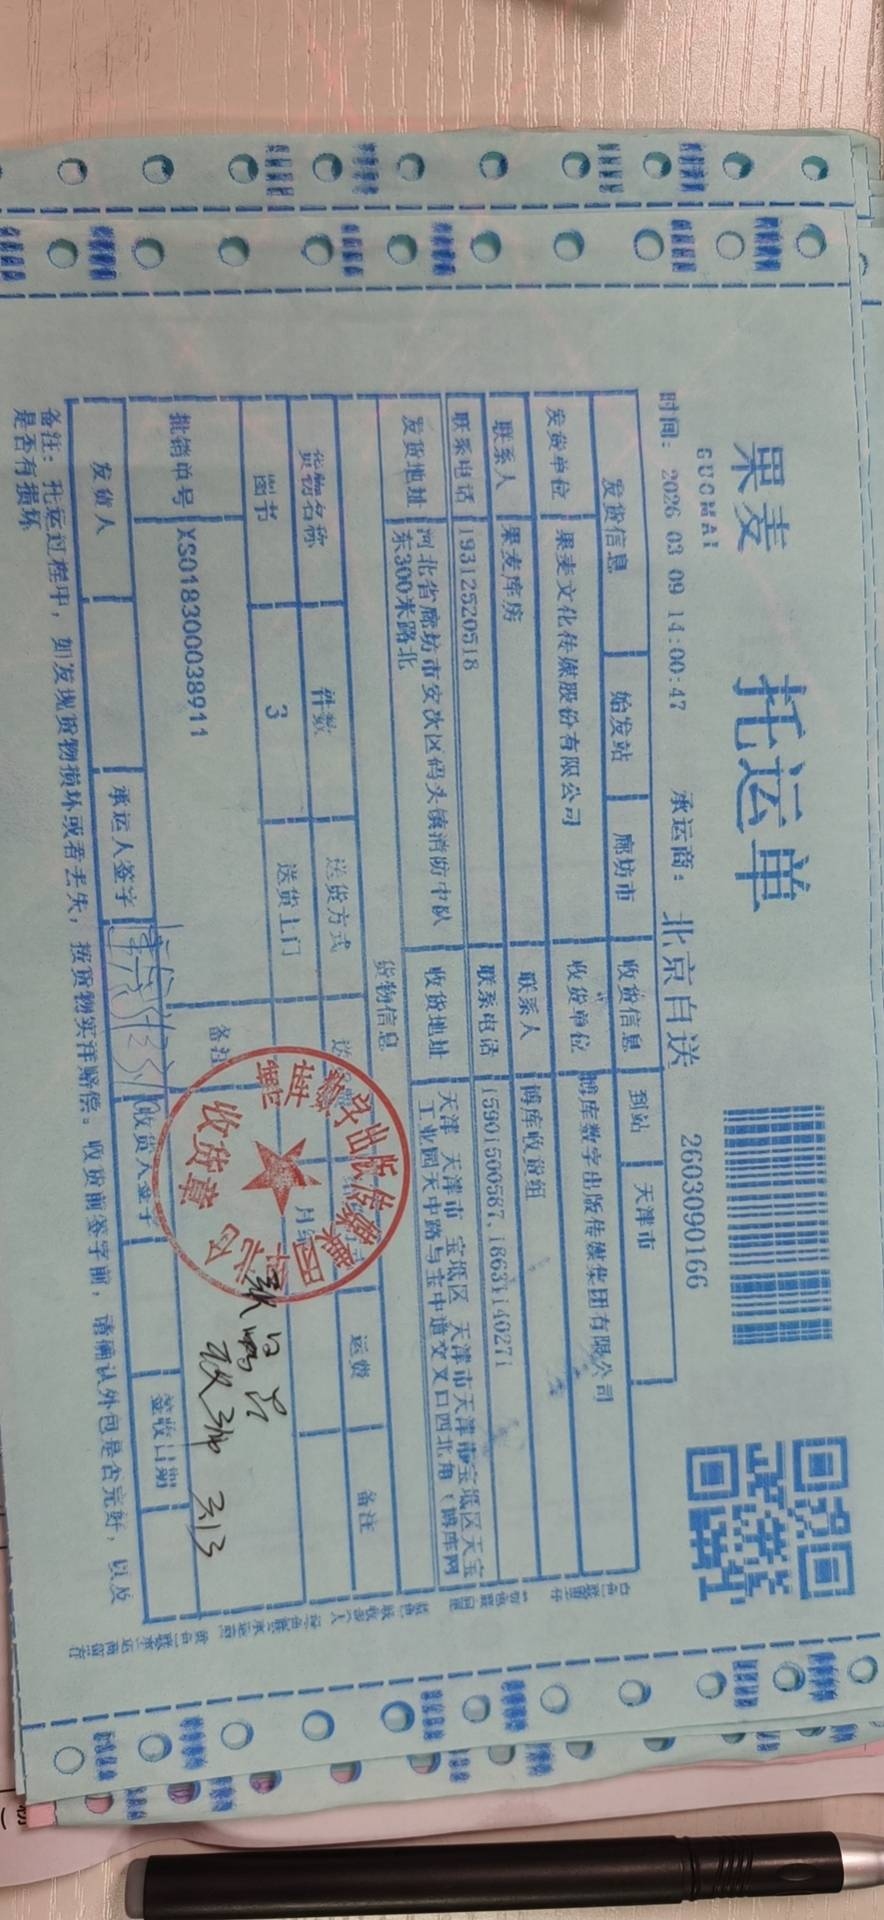 果麦
GUOMAI
托运单
2603090166
时间: 2026 03 09 14:00:47 承运商: 北京自送
发货信息 始发站 廊坊市 收货信息 到站 天津市
发货单位 果麦文化传媒股份有限公司 收货单位 博库数字出版传媒集团有限公司
联系人 果麦库房 联系人 博库收货组
联系电话 19312520518 联系电话 15901500587,18631140271
发货地址 河北省廊坊市安次区码头镇消防中队
东300米路北
收货地址 天津 天津市 宝坻区 天津市天津市宝坻区天宝
工业园天中路与宝中道交叉口西北角(博库网
货物信息
货物名称 件数 送货方式 运费 备注
图书 3 送货上门
批销单号 XS018300038911 备注
发货人 承运人签字 收货人签字 签收日期
备注: 托运过程中, 如发现货物损坏或者丢失, 按货物实洋赔偿。收货前签字前, 请确认外包是否完好, 以及
是否有损坏
数字出版传媒集团
收货章
收3件 3.13